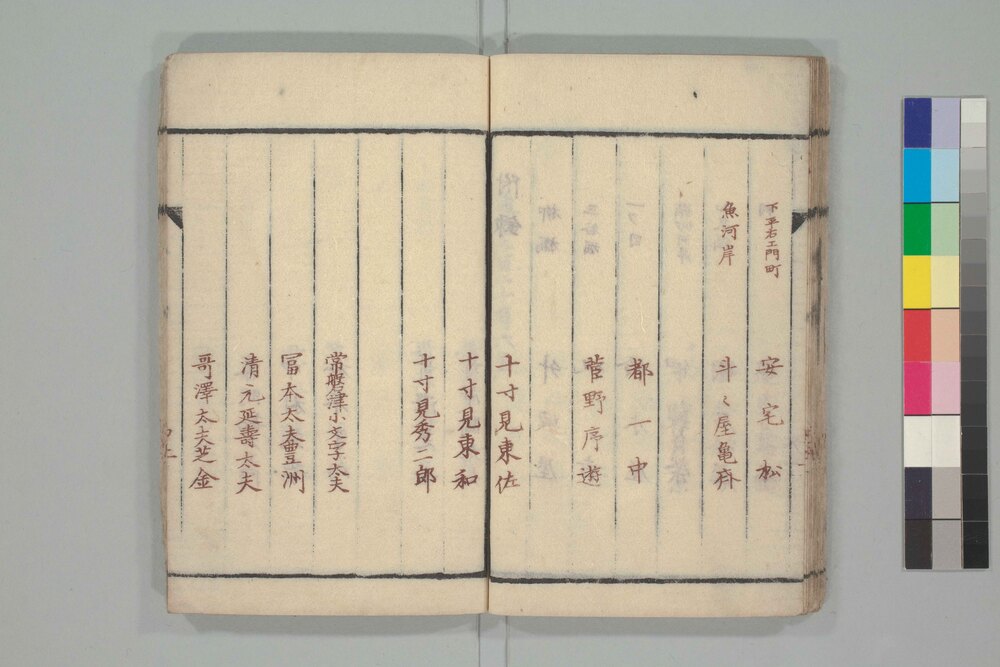 下平右エ門町 安宅松
魚河岸 斗々屋亀斉
都一中
菅野序遊
十寸見東佐
十寸見東和
十寸見秀二郎
常磐津小文字太夫
冨本太夫豊洲
清元延壽太夫
哥澤太夫芝金